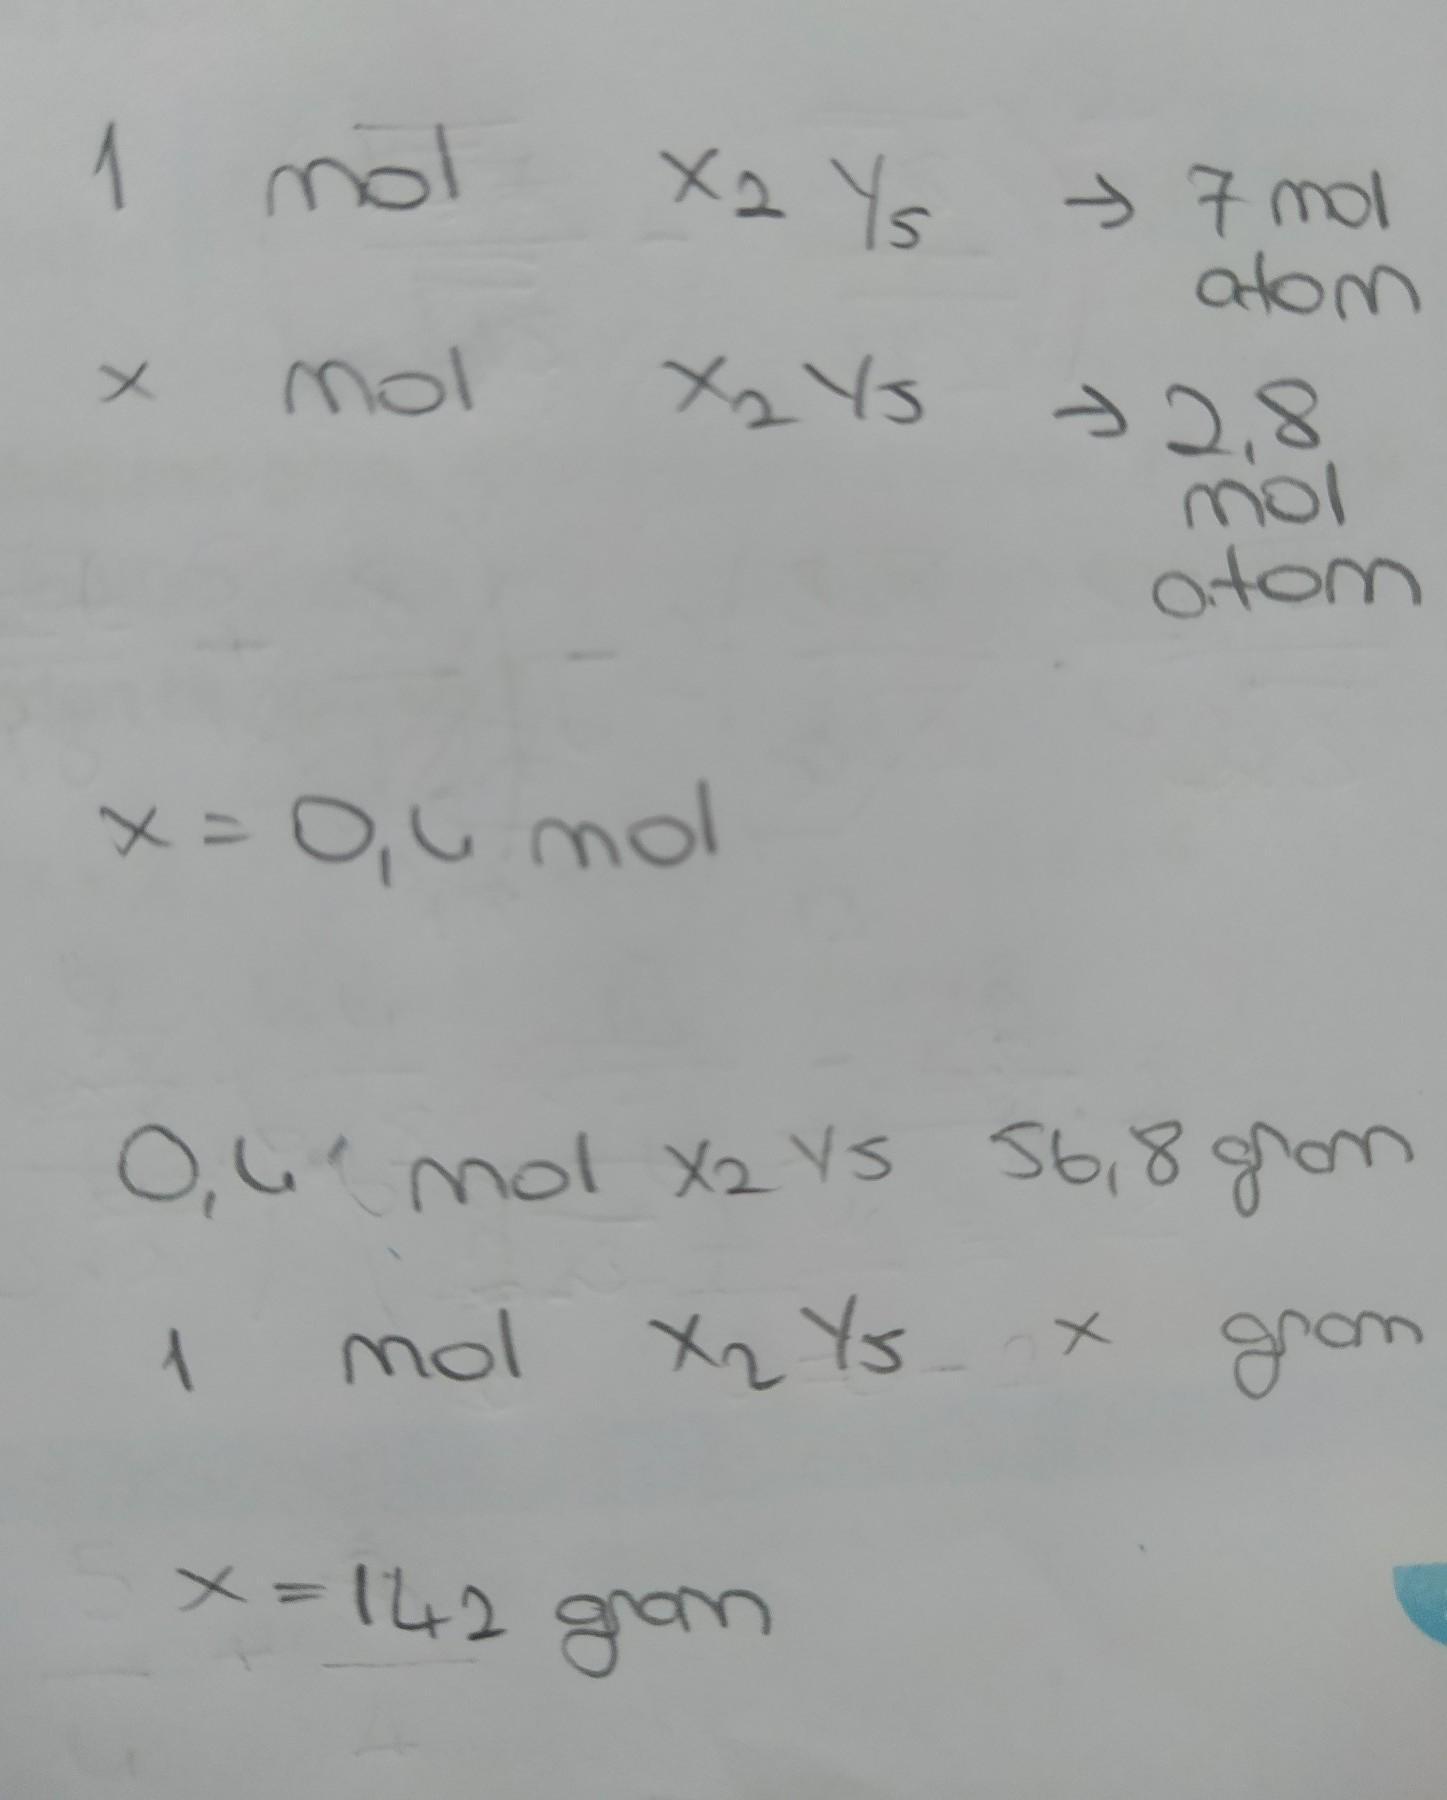 1 mol X2 Y5 → 7 mol
atom
x mol X2 Y5 → 2,8
mol
atom
x = 0,4 mol
0,4 mol X2 Y5 56,8 gram
1 mol X2 Y5 x gram
x = 142 gram